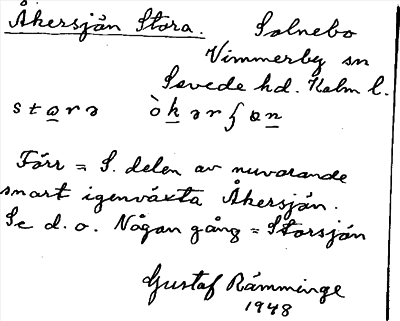 Åkersjön Stora. Solnebo
Vimmerby sn
Sevede hd. Kalm l.
stọrə òkərʃɵn
Förr = S. delen av nuvarande
snart igenväxta Åkersjön.
Se d. o. Någon gång = Storsjön
Gustaf Rämminge
1948